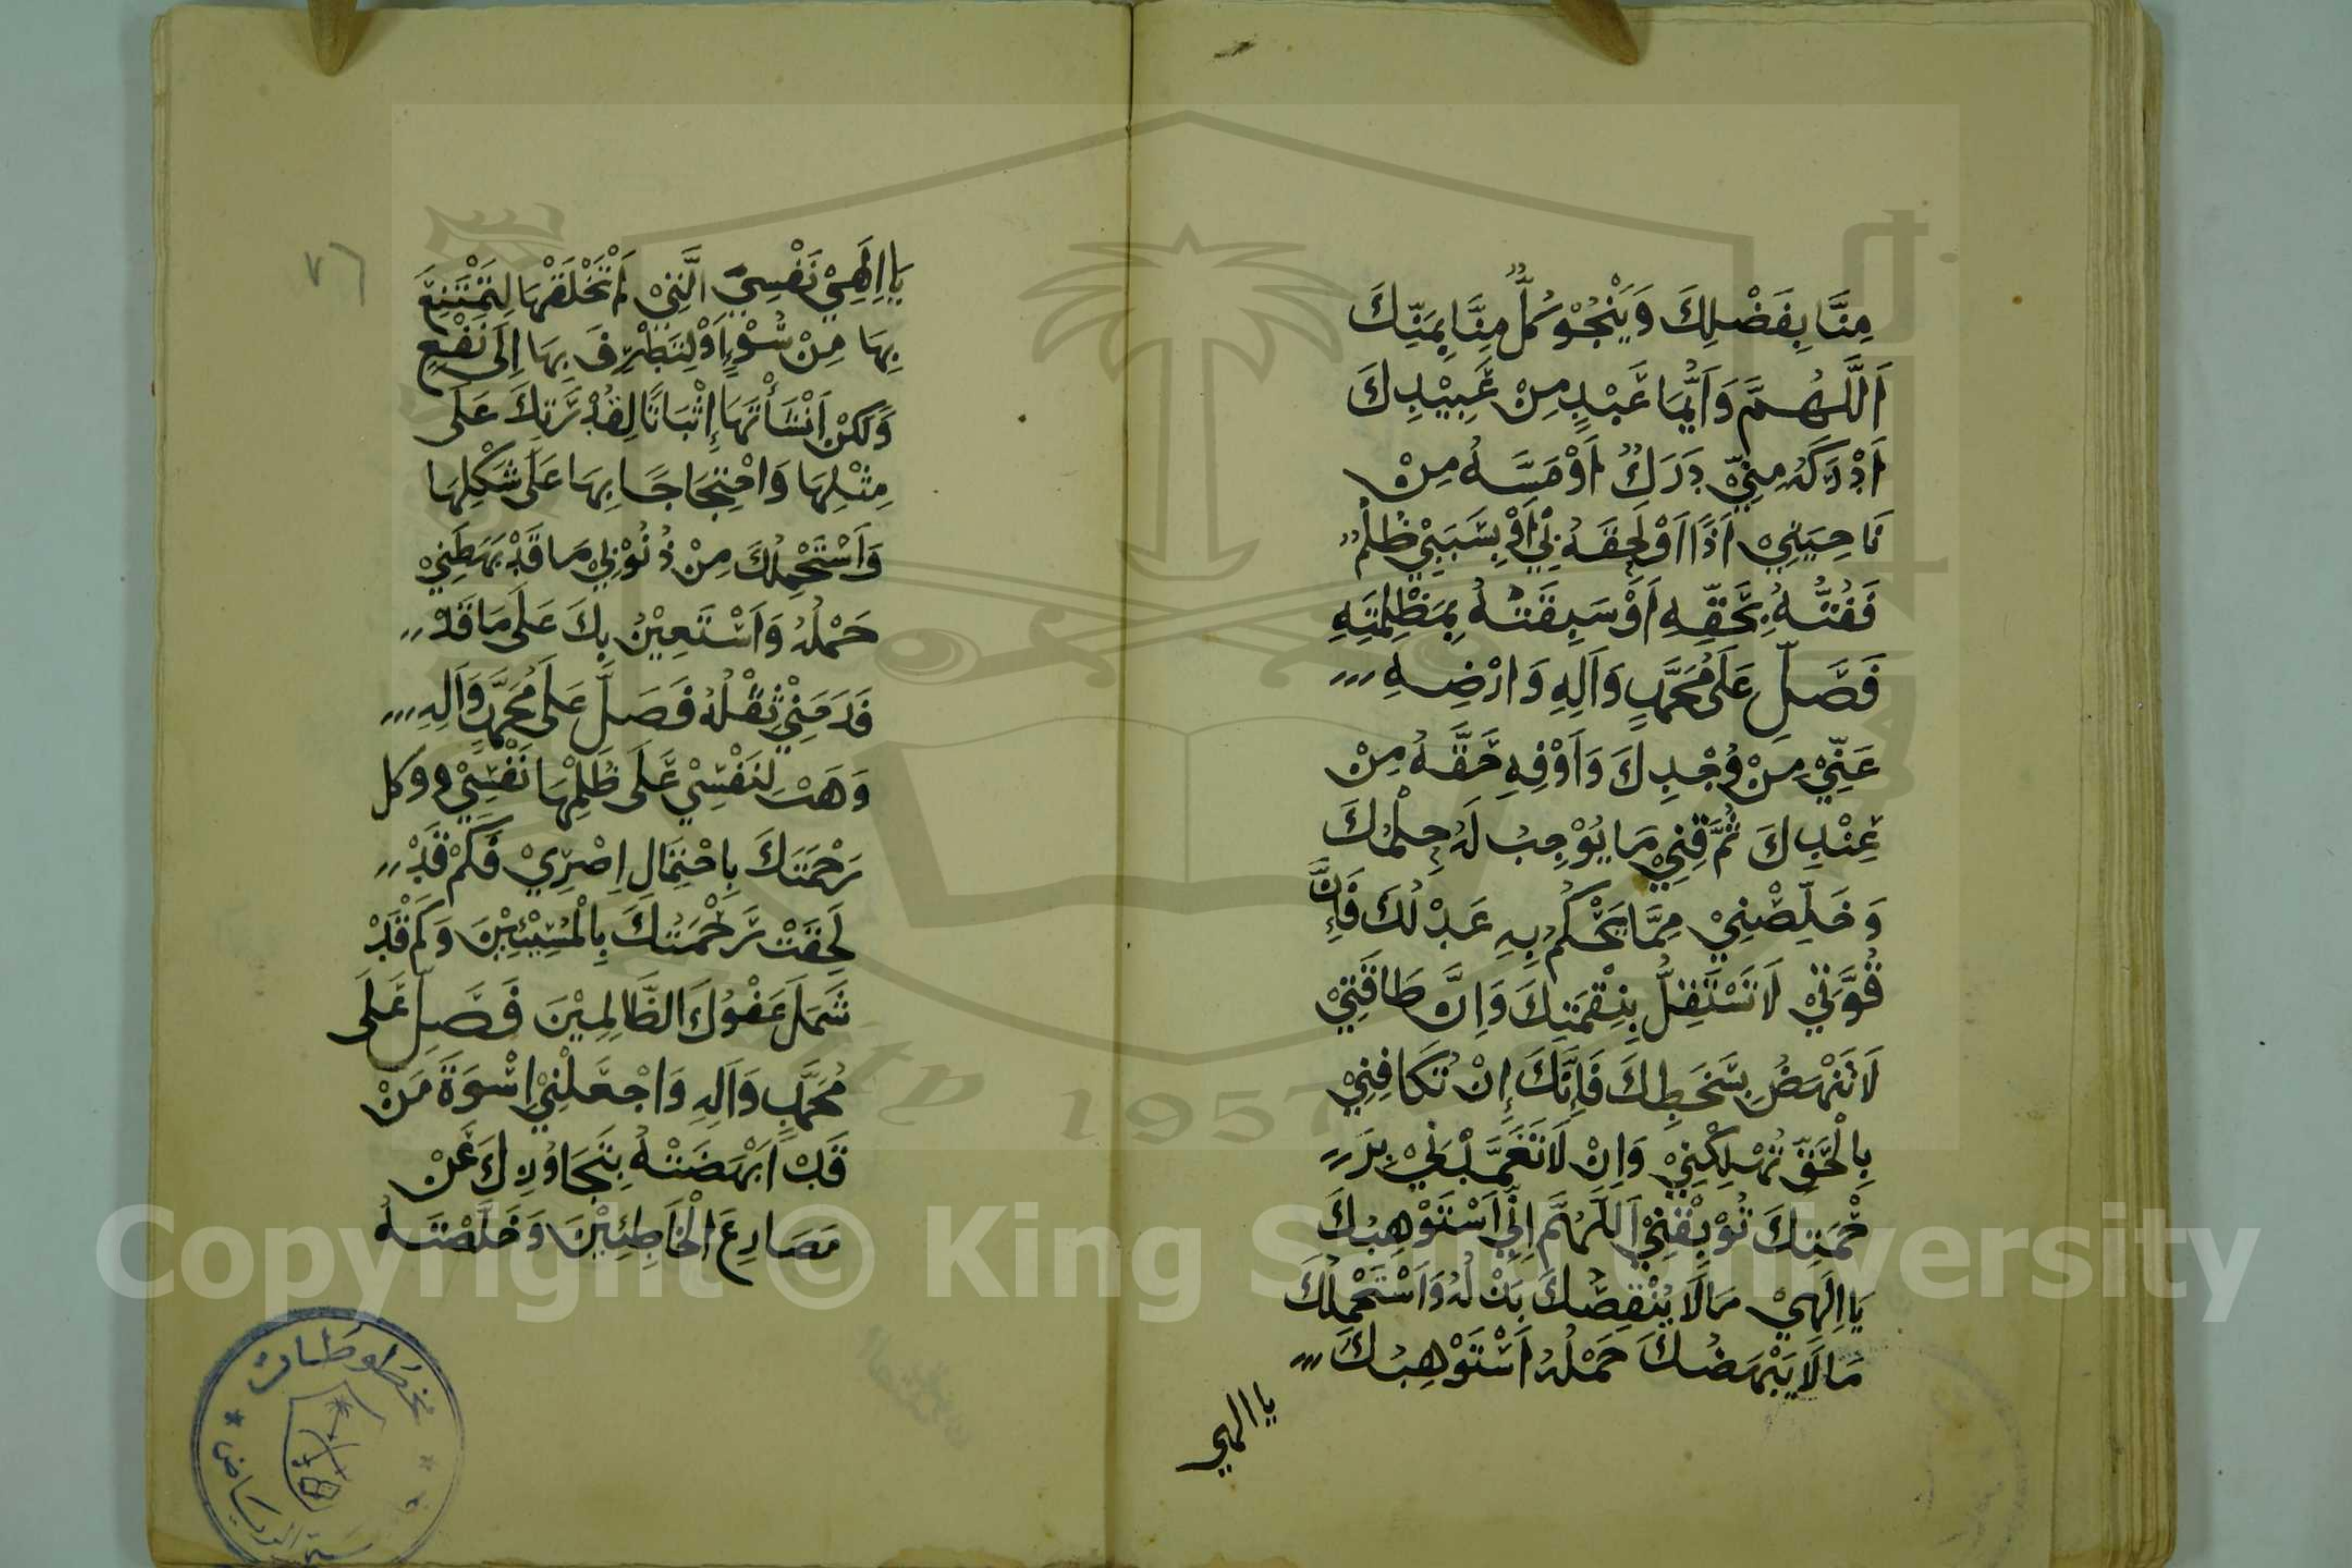 مِنَّا بِفَضْلِكَ وَيَنْجُوْ كُلٌّ مِنَّا بِمَنِّكَ
اَللَّهُمَّ وَاَيُّمَا عَبْدٍ مِنْ عَبِيْدِكَ
اَدْرَكَهُ مِنِّيْ دَرَكٌ اَوْ مَسَّهُ مِنْ
نَاحِيَتِيْ اَذًا اَوْ لَحِقَهُ بِيْ اَوْ بِسَبَبِيْ ظُلْمٌ
فَفُتُّهُ بِحَقِّهِ اَوْ سَبَقْتُهُ بِمَظْلِمَتِهِ
فَصَلِّ عَلَى مُحَمَّدٍ وَاَلِهِ وَارْضِهِ
عَنِّيْ مِنْ وُجْدِكَ وَاَوْفِهِ حَقَّهُ مِنْ
عِنْدِكَ ثُمَّ قِنِيْ مَا يُوْجِبُ لَهُ حِلْمُكَ
وَخَلِّصْنِيْ مِمَّا يَحْكُمُ بِهِ عَدْلُكَ فَاِنَّ
قُوَّتِيْ لَا تَسْتَقِلُّ بِنِقْمَتِكَ وَاِنَّ طَاقَتِيْ
لَا تَنْهَضُ بِسَخَطِكَ فَاِنَّكَ اِنْ تُكَافِنِيْ
بِالْحَقِّ تُهْلِكْنِيْ وَاِنْ لَا تَغَمَّدْنِيْ بِرَ
حْمَتِكَ تُوْبِقْنِيْ اَللَّهُمَّ اِنِّيْ اَسْتَوْهِبُكَ
يَا اِلَهِيْ مَا لَا يُنْقِصُكَ بَذْلُهُ وَاَسْتَحْمِلُكَ
مَا لَا يَبْهَضُكَ حَمْلُهُ اَسْتَوْهِبُكَ
يا الهي
٧٦
يَا اِلَهِيْ نَفْسِيَ الَّتِيْ لَمْ تَخْلُقْهَا لِتَمْتَنِعَ
بِهَا مِنْ سُوْءٍ اَوْ لِتَطَرَّفَ بِهَا اِلَى نَفْعٍ
وَلَكِنْ اَنْشَأْتَهَا اِثْبَاتًا لِقُدْرَتِكَ عَلَى
مِثْلِهَا وَاحْتِجَاجًا بِهَا عَلَى شَكْلِهَا
وَاَسْتَحْمِلُكَ مِنْ ذُنُوْبِيْ مَا قَدْ بَهَظَنِيْ
حَمْلُهُ وَاَسْتَعِيْنُ بِكَ عَلَى مَا قَدْ
فَدَحَنِيْ ثِقْلُهُ فَصَلِّ عَلَى مُحَمَّدٍ وَاَلِهِ
وَهَبْ لِنَفْسِيْ عَلَى ظُلْمِهَا نَفْسِيْ ووكل
رَحْمَتَكَ بِاحْتِمَالِ اِصْرِيْ فَكَمْ قَدْ
لَحِقَتْ رَحْمَتُكَ بِالْمُسِيْئِيْنَ وَكَمْ قَدْ
شَمَلَ عَفْوُكَ الظَّالِمِيْنَ فَصَلِّ عَلَى
مُحَمَّدٍ وَاَلِهِ وَاجْعَلْنِيْ اِسْوَةَ مَنْ
قَدْ اَنْهَضْتَهُ بِتَجَاوُزِكَ عَنْ
مَصَارِعِ الْخَاطِئِيْنَ وَخَلَّصْتَهُ
مخطوطات
الرياض
1957
Copyright © King Saud University